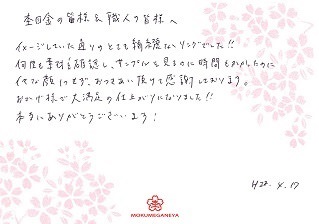 杢目金の皆様&職人の皆様へ
イメージしていた通りのとても綺麗なリングでした!!
何度も素材を確認し、サンプルを見るのに時間をかけたのに
イヤな顔1つせず、おつきあい頂けて感謝しております。
おかげ様で大満足の仕上がりになりました!!
本当にありがとうございます!
H28. 4. 17
MOKUMEGANEYA